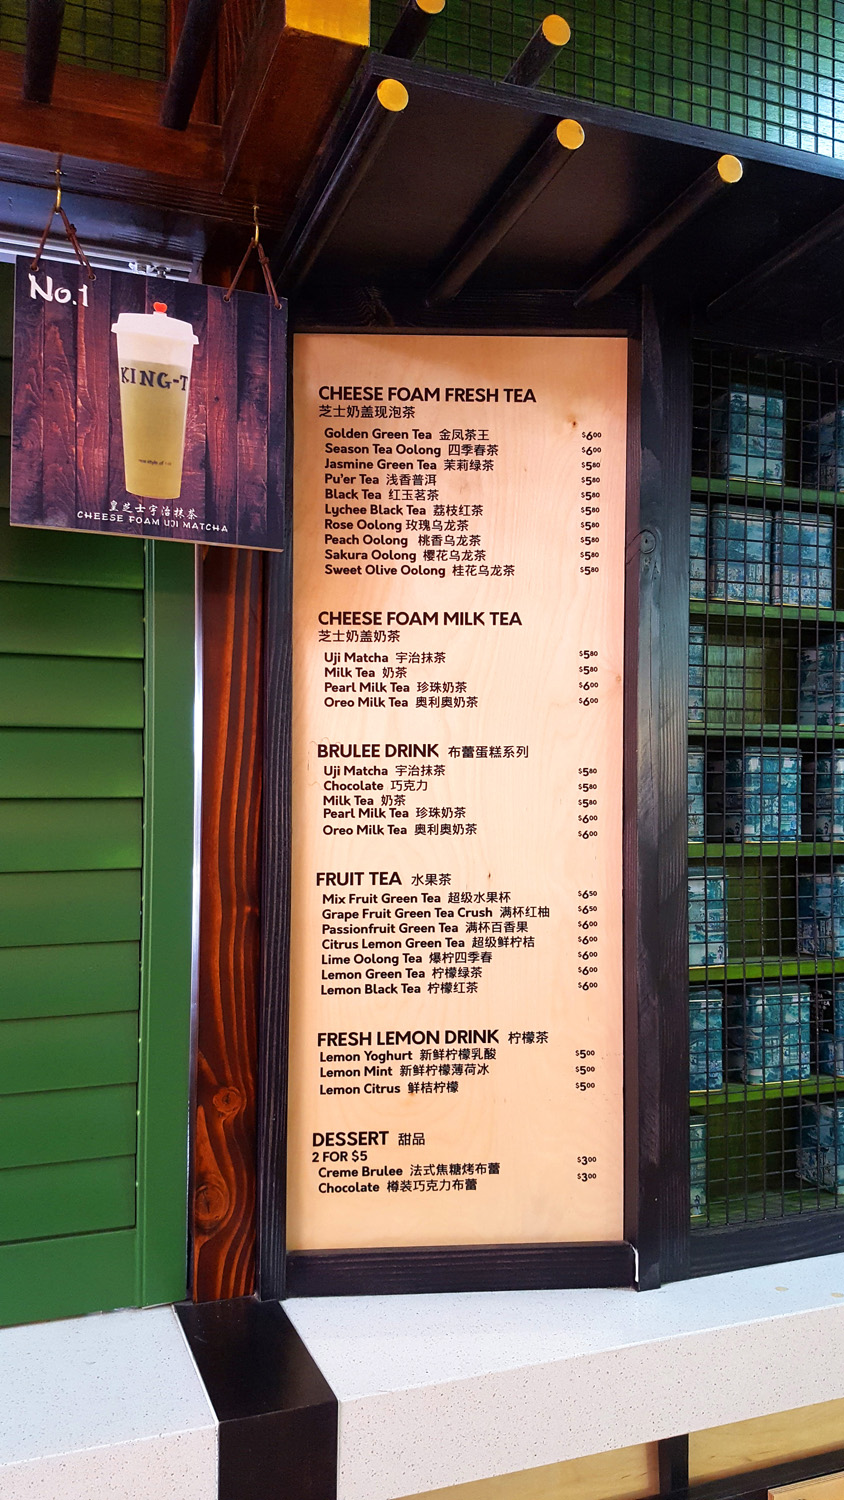 No.1
KING-T
皇芝士宇治抹茶
CHEESE FOAM UJI MATCHA
CHEESE FOAM FRESH TEA
芝士奶盖现泡茶
Golden Green Tea 金凤茶王 $600
Season Tea Oolong 四季春茶 $600
Jasmine Green Tea 茉莉绿茶 $580
Pu'er Tea 浅香普洱 $580
Black Tea 红玉茗茶 $580
Lychee Black Tea 荔枝红茶 $580
Rose Oolong 玫瑰乌龙茶 $580
Peach Oolong 桃香乌龙茶 $580
Sakura Oolong 樱花乌龙茶 $580
Sweet Olive Oolong 桂花乌龙茶 $580
CHEESE FOAM MILK TEA
芝士奶盖奶茶
Uji Matcha 宇治抹茶 $580
Milk Tea 奶茶 $580
Pearl Milk Tea 珍珠奶茶 $600
Oreo Milk Tea 奥利奥奶茶 $600
BRULEE DRINK 布蕾蛋糕系列
Uji Matcha 宇治抹茶 $580
Chocolate 巧克力 $580
Milk Tea 奶茶 $580
Pearl Milk Tea 珍珠奶茶 $600
Oreo Milk Tea 奥利奥奶茶 $600
FRUIT TEA 水果茶
Mix Fruit Green Tea 超级水果杯 $650
Grape Fruit Green Tea Crush 满杯红柚 $650
Passionfruit Green Tea 满杯百香果 $600
Citrus Lemon Green Tea 超级鲜柠桔 $600
Lime Oolong Tea 爆柠四季春 $600
Lemon Green Tea 柠檬绿茶 $600
Lemon Black Tea 柠檬红茶 $600
FRESH LEMON DRINK 柠檬茶
Lemon Yoghurt 新鲜柠檬乳酸 $500
Lemon Mint 新鲜柠檬薄荷冰 $500
Lemon Citrus 鲜桔柠檬 $500
DESSERT 甜品
2 FOR $5
Creme Brulee 法式焦糖烤布蕾 $300
Chocolate 樽装巧克力布蕾 $300